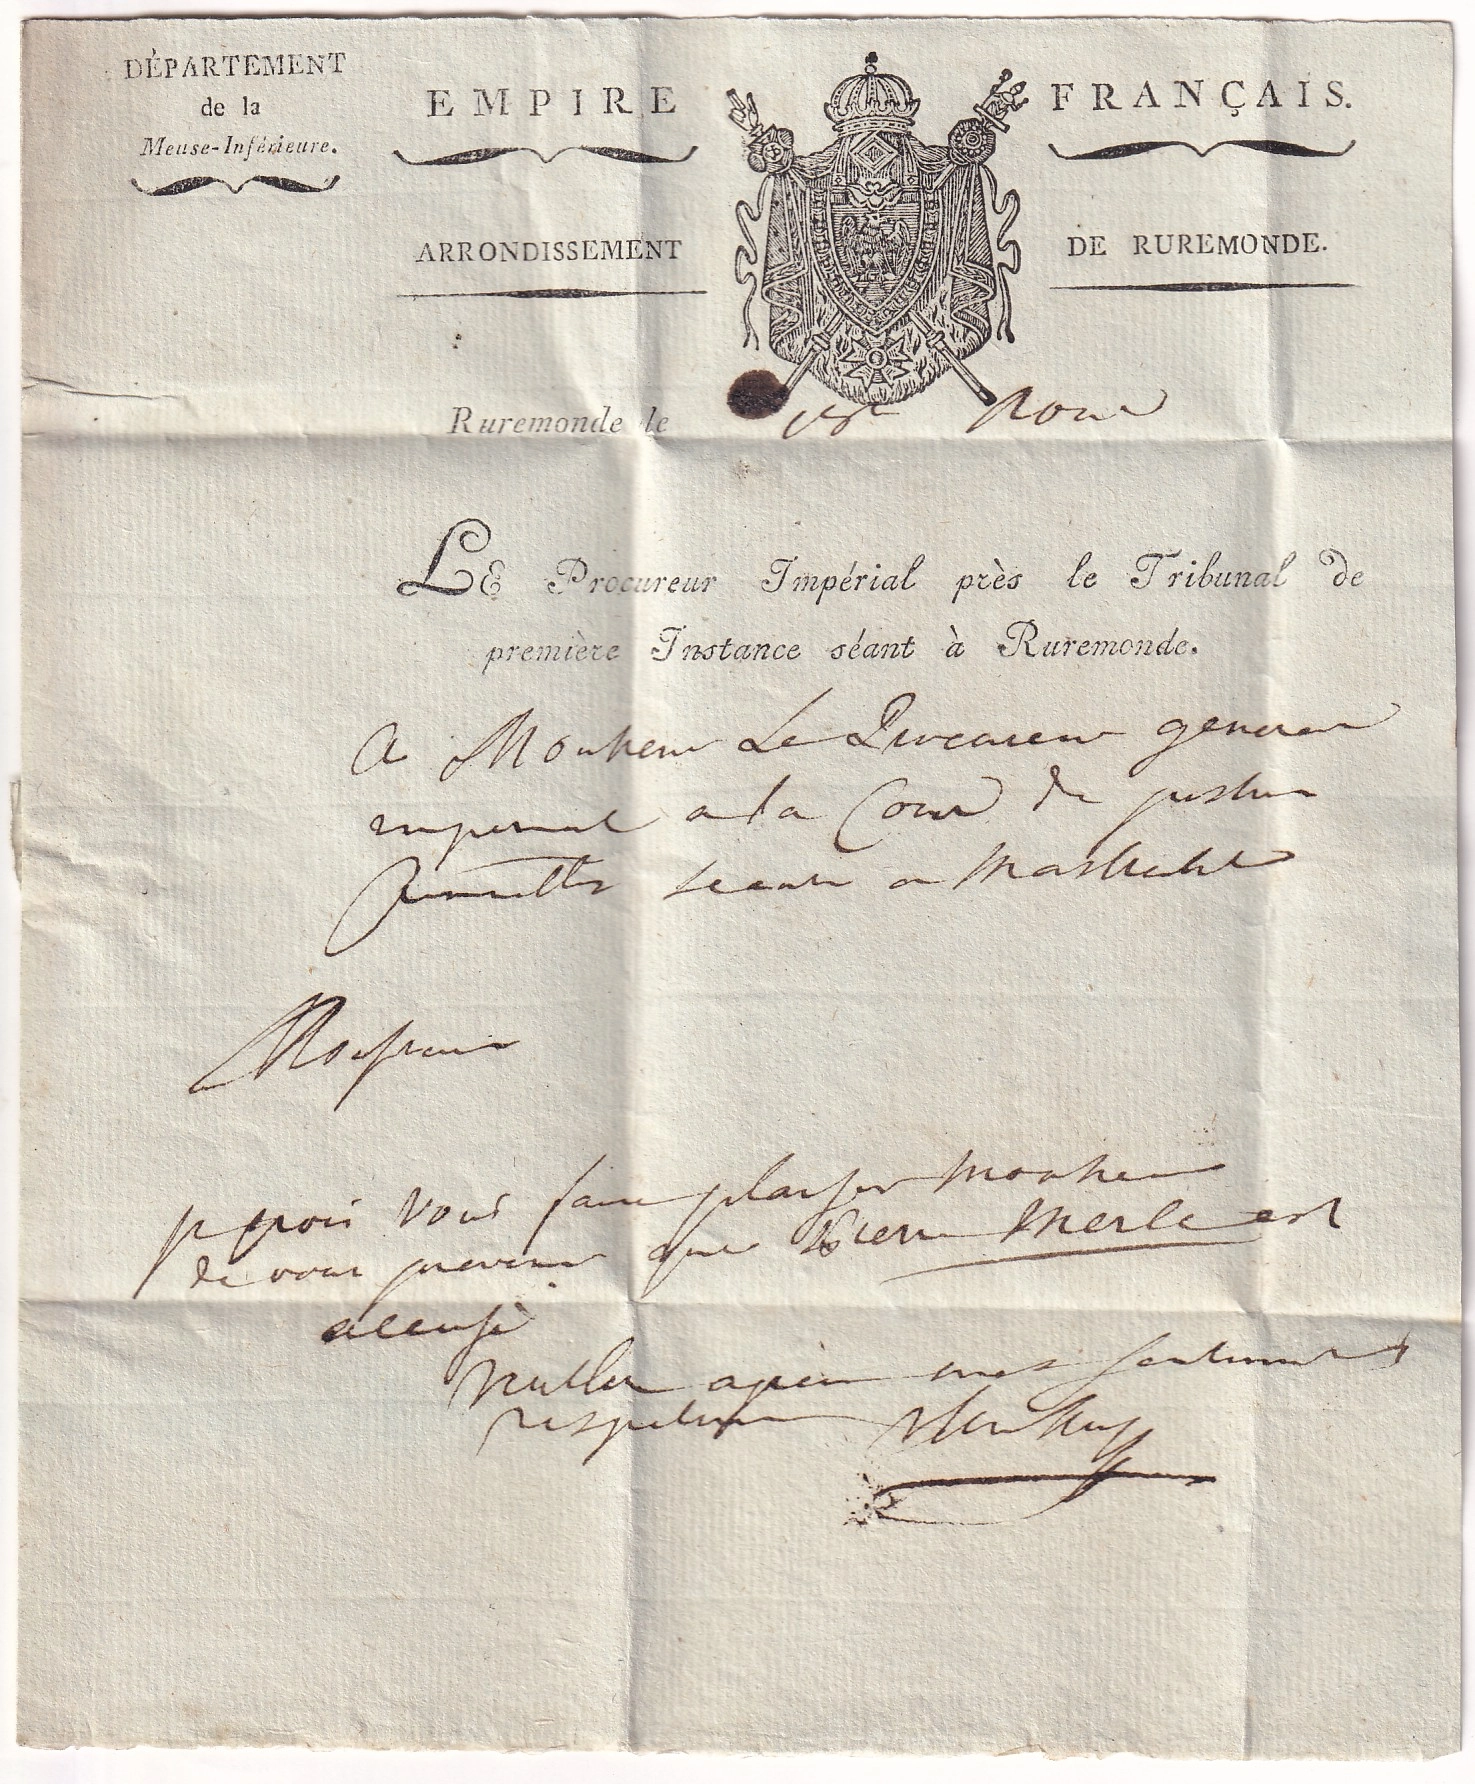 DÉPARTEMENT
de la
Meuse-Inférieure.
EMPIRE FRANÇAIS.
ARRONDISSEMENT DE RUREMONDE.
Ruremonde le
LE Procureur Impérial près le Tribunal de
première Instance séant à Ruremonde.
A Monsieur Le Procureur general
imperial a la Cour de justice
Criminelle seant a Mastricht
Monsieur
je crois vous faire plaisir Monsieur
de vous prevenir que Pierre Merle est
accusé
Veuillez agréer mes sentiments
respectueux